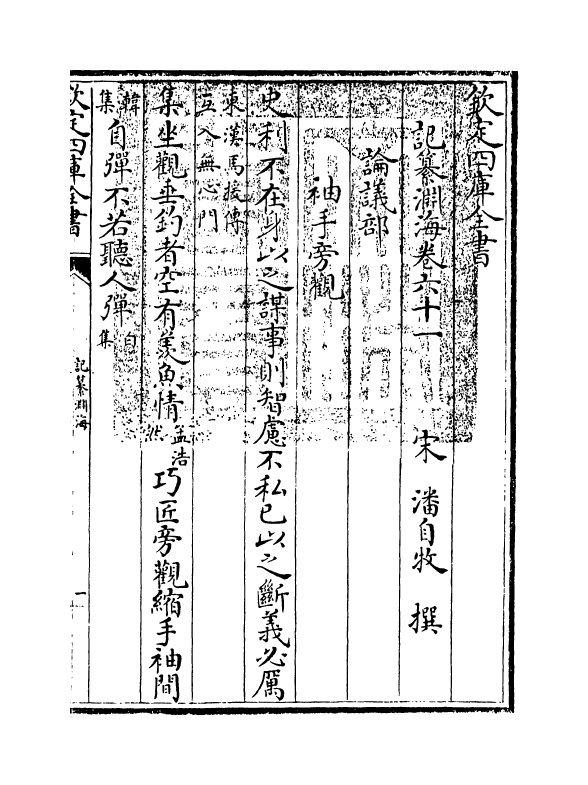 欽定四庫全書
記纂淵海卷六十一　　宋　潘自牧　撰
論議部
袖手旁觀
史利不在身以之謀事則智慮不私已以之斷義必厲
東漢馬援傳
互入無心門
集坐觀垂釣者空有羡魚情孟浩然 巧匠旁觀縮手袖間
韓集 自彈不若聽人彈白集
欽定四庫全書
記纂淵海
一